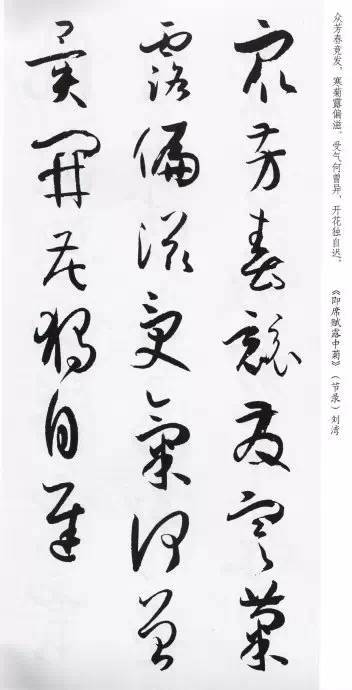 众芳春竞发，寒菊露偏滋。受气何曾异，开花独自迟。
《即席赋露中菊》（节录）刘湾
众芳春竞发寒菊
露偏滋受氣何曾
異開花獨自遲